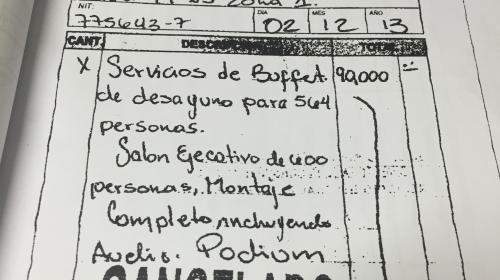 Zona 1.
NIT: DIA MES AÑO
775643-7 02 12 13
CANT. DESCRIPCION TOTAL
X Servicios de Buffet 90,000
de desayuno para 564
personas.
Salon Ejecativo de 400
personas, Montaje
Completo, incluyendo
Audio. Podium
CANCELADO